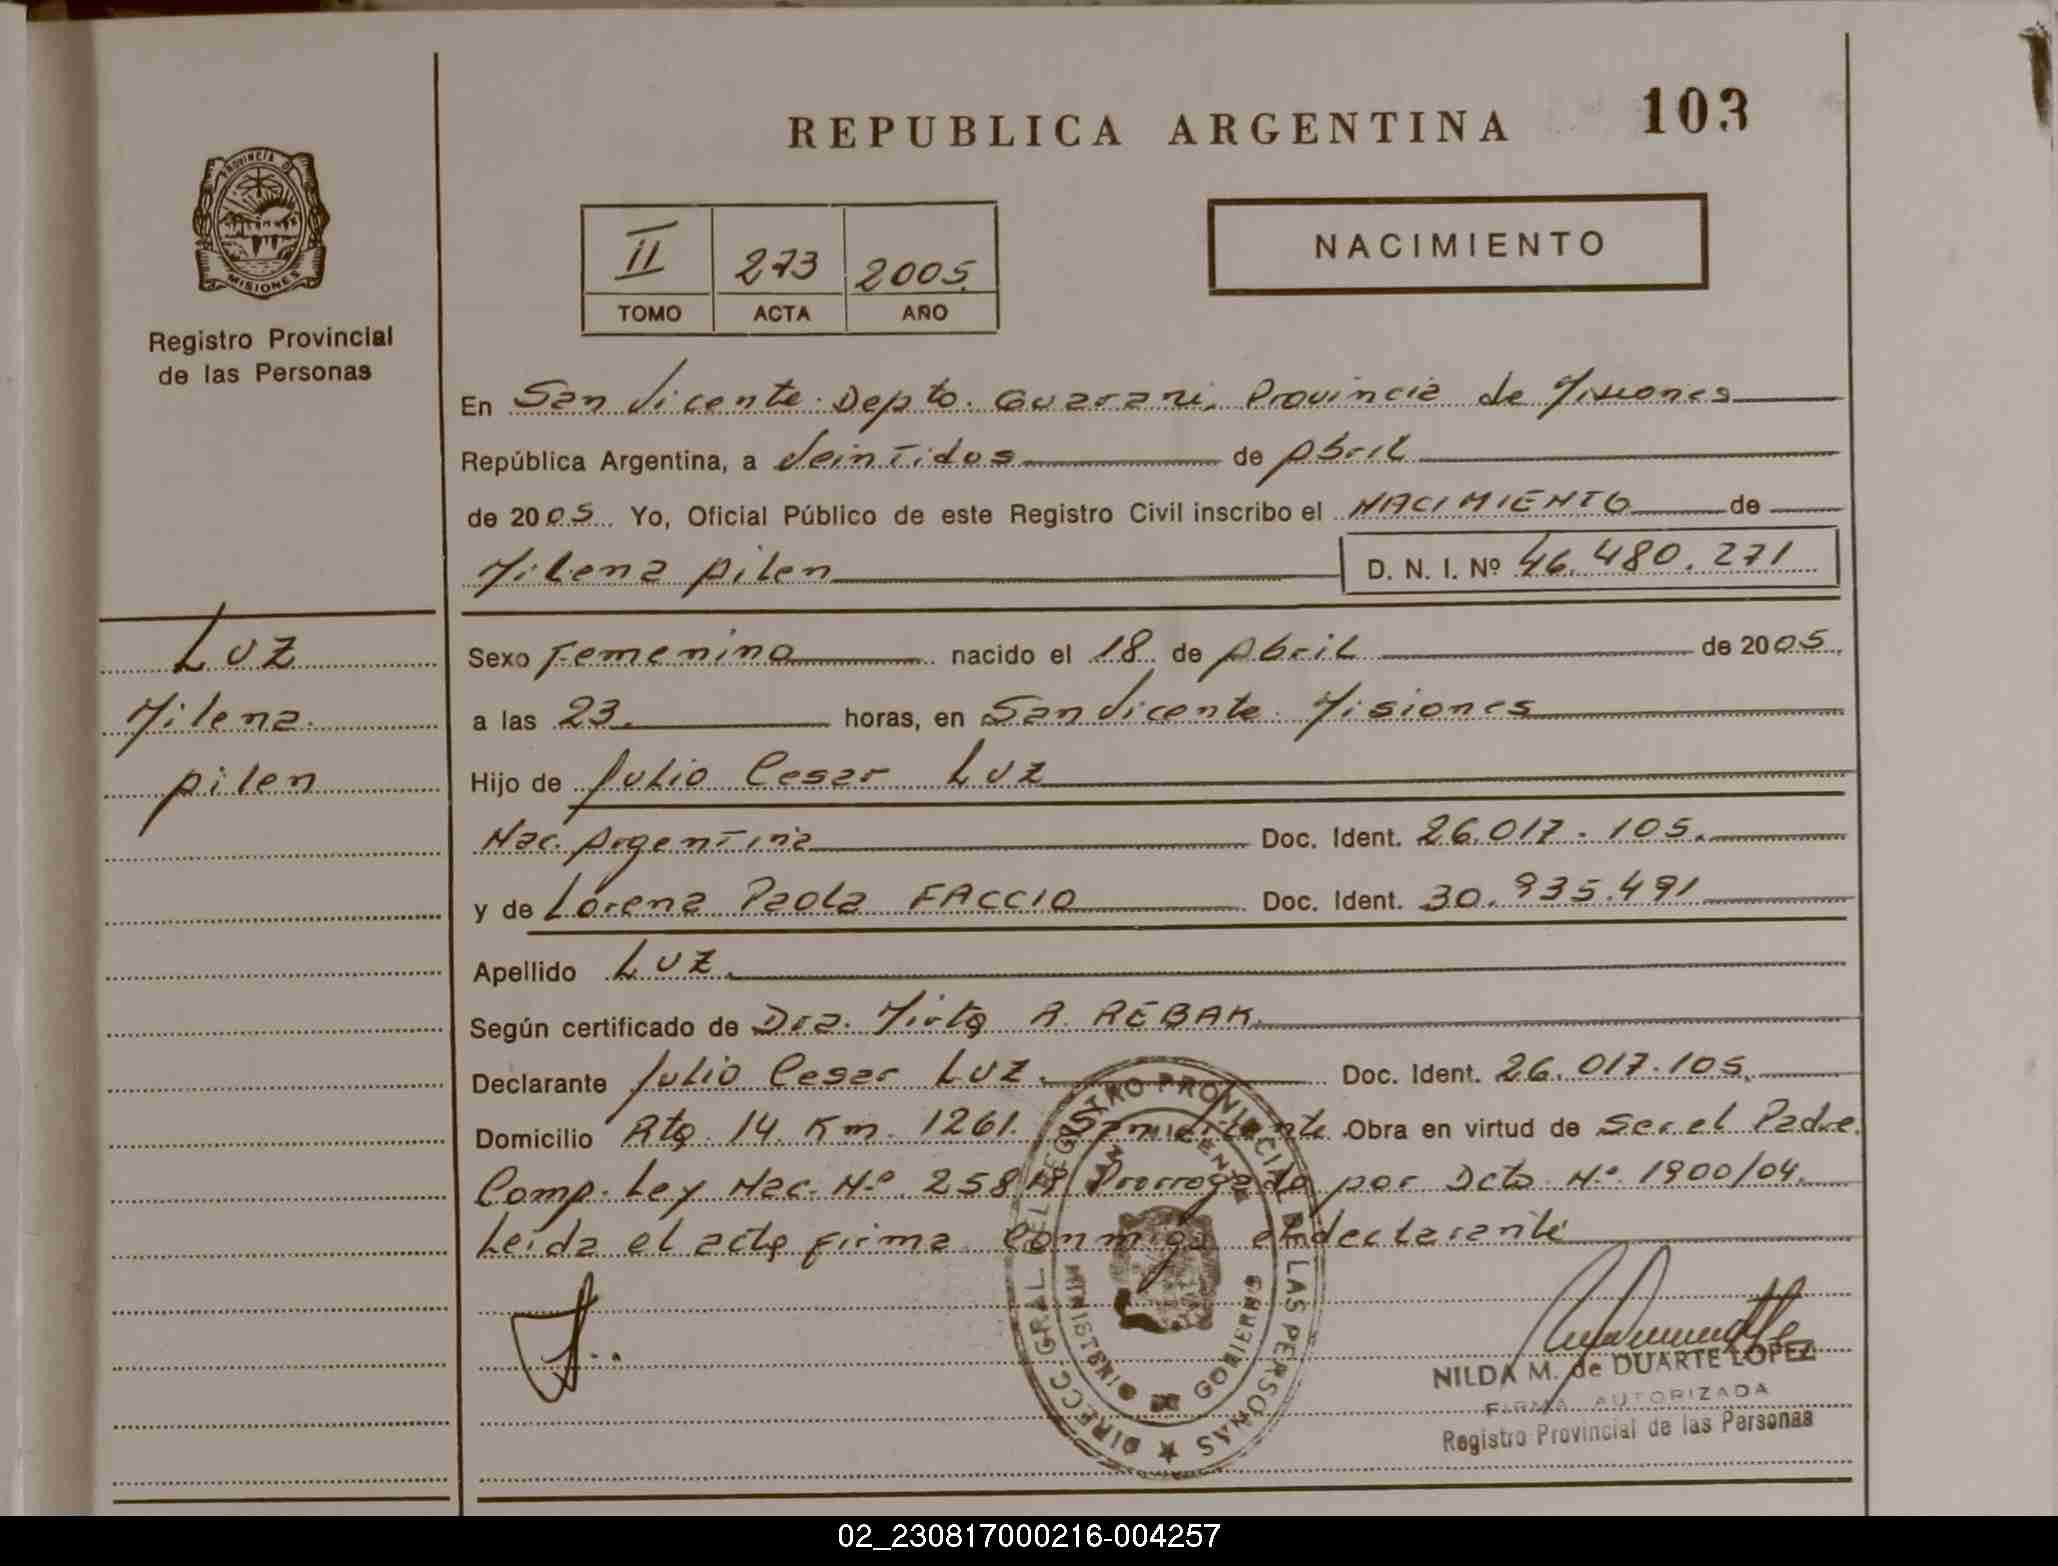 REPUBLICA ARGENTINA
103
PROVINCIA D
MISIONES
Registro Provincial
de las Personas
II 273 2005
TOMO ACTA AÑO
NACIMIENTO
En San Vicente. Depto. Guarani, Provincia de Misiones
República Argentina, a Veintidos de Abril
de 2005 Yo, Oficial Público de este Registro Civil inscribo el NACIMIENTO de
Milena Ailen D. N. I. Nº 46.480.271
LUZ
Milena
Ailen
Sexo Femenino nacido el 18 de Abril de 2005
a las 23. horas, en San Vicente. Misiones
Hijo de Julio Cesar Luz
Nac. Argentina Doc. Ident. 26.017.105.
y de Lorena Paola FACCIO Doc. Ident. 30.935.491
Apellido LUZ
Según certificado de Dra. Mirta R. REBAK
Declarante Julio Cesar LUZ. Doc. Ident. 26.017.105.
Domicilio Rta. 14 Km. 1261. San Vicente Obra en virtud de Ser el Padre.
Comp. Ley Nac. Nº 25819 Prorrogado por Dcto Nº 1900/04.
Leida el acta firma Conmigo el declarante
DIRECC. GRAL DEL REGISTRO PROVINCIAL DE LAS PERSONAS
MINISTERIO DE GOBIERNO
NILDA M. de DUARTE LOPEZ
FIRMA AUTORIZADA
Registro Provincial de las Personas
02_230817000216-004257